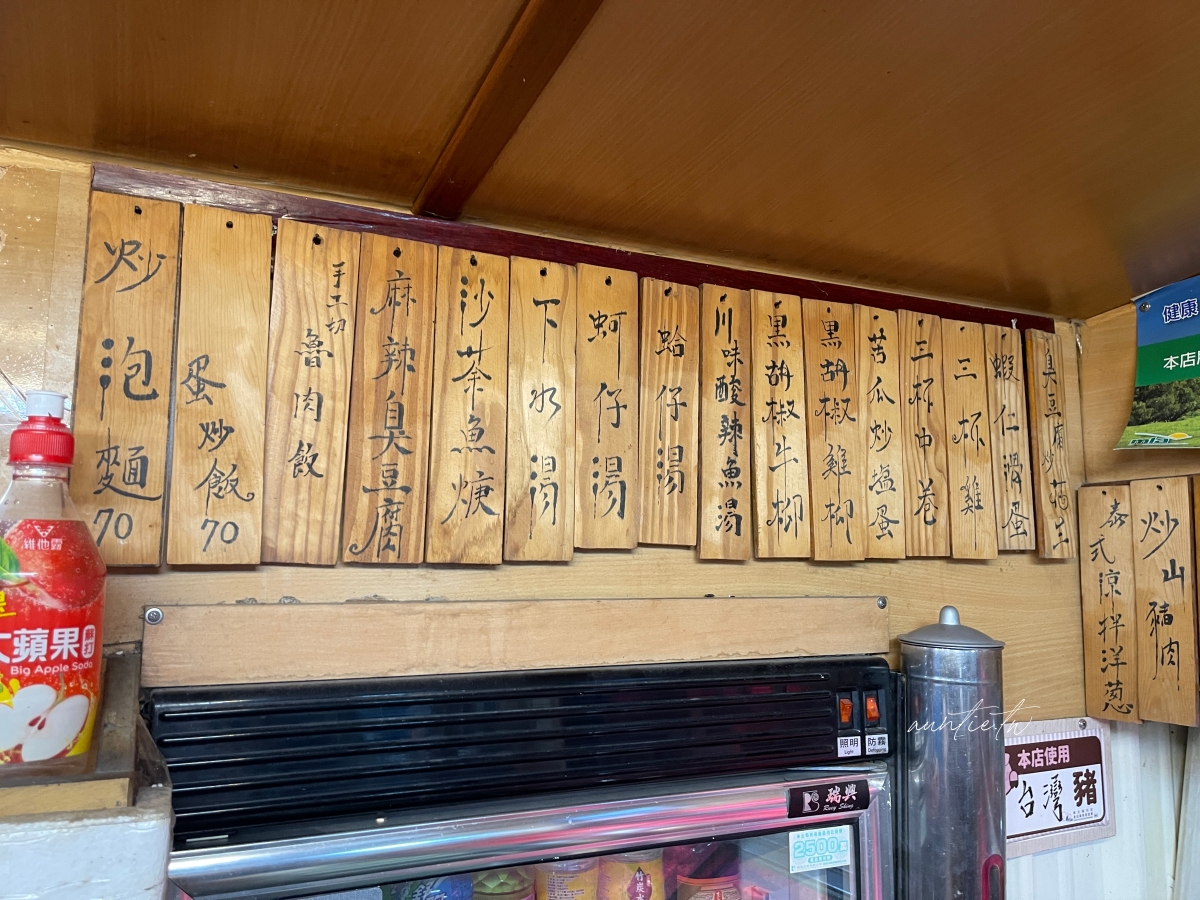 炒泡麵
70
蛋炒飯
70
手工切
魯肉飯
麻辣臭豆腐
沙茶魚焿
下水湯
蚵仔湯
蛤仔湯
川味酸辣魚湯
黑胡椒牛柳
黑胡椒雞柳
苦瓜炒塩蛋
三杯中卷
三杯雞
蝦仁滑蛋
臭豆腐炒
泰式涼拌洋葱
炒山豬肉
健康
本店
維他露
大蘋果
Big Apple Soda
照明
Light
防霧
瑞興
Ruey Shing
2500萬
auntie.tw
本店使用
台灣豬